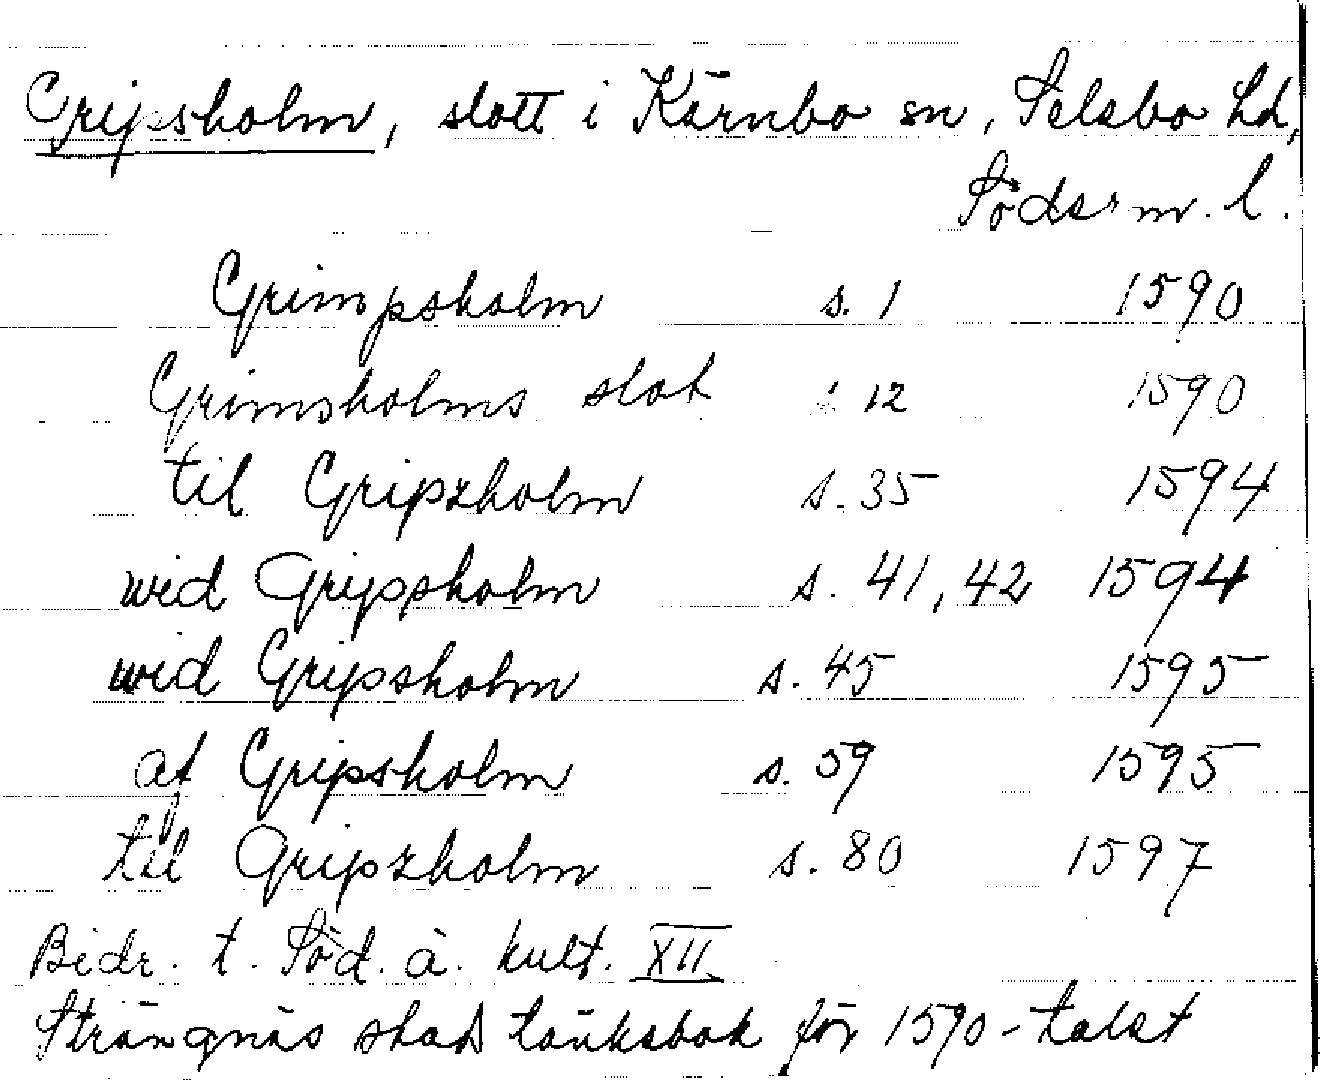 Gripsholm, slott i Kärnbo sn, Selebo hd,
Söderm. l.
Grimpsholm s. 1 1590
Grimsholms slot s 12 1590
til Gripzholm s. 35 1594
wid Gripssholm s. 41, 42 1594
wid Gripsholm s. 45 1595
af Gripsholm s. 59 1595
til Gripzholm s. 80 1597
Bidr. t. Söd. ä. kult. XII
Strängnäs stads tänkebok för 1590-talet